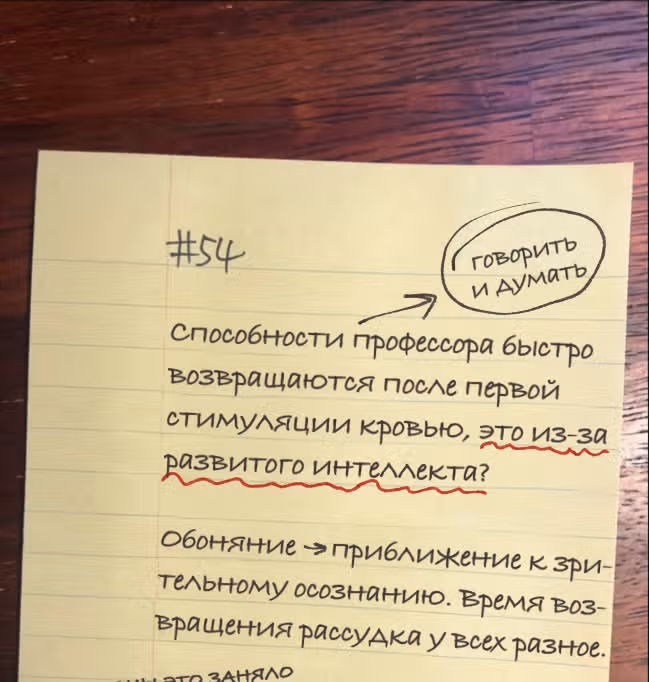 #54
говорить
и думать
Способности профессора быстро
возвращаются после первой
стимуляции кровью, это из-за
развитого интеллекта?
Обоняние → приближение к зри-
тельному осознанию. Время воз-
вращения рассудка у всех разное.
это заняло